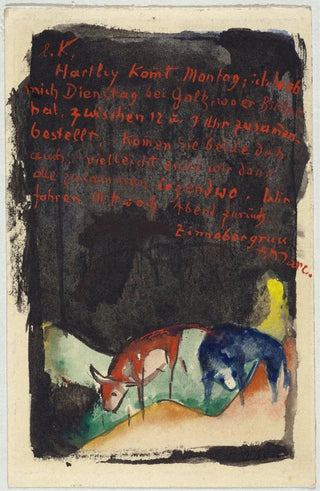 l. K,
Hartley komt Montag; ich hab
mich Dienstag bei Goltz, wo er Bilder
hat, zwischen 12 u 1 Uhr zusamen-
bestellt, komen Sie beide doch
auch, vielleicht essen wir dann
alle zusamen irgendwo. Wir
fahren Mittwoch Abend zurück
Zinnobergruss
FMarc.